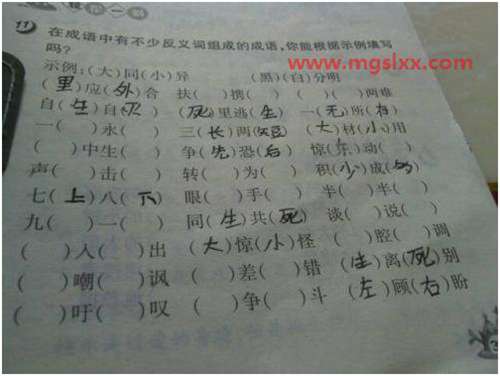 www.mgslxx.com
11 在成语中有不少反义词组成的成语,你能根据示例填写
吗?
示例:(大)同(小)异 (黑)(白)分明
(里)应(外)合 扶( )携( ) ( )( )两难
自(生)自(灭) (死)里逃(生) 一(无)所(有)
一( )永( ) 三(长)两(短) (大)材(小)用
( )中生( ) 争(先)恐(后) 惊( )动( )
声( )击( ) 转( )为( ) 积(小)成( )
七(上)八(下) 眼( )手( ) 半( )半( )
九( )一( ) 同(生)共(死) 谈( )说( )
( )入( )出 (大)惊(小)怪 ( )腔( )调
( )嘲( )讽 ( )差( )错 (生)离(死)别
( )吁( )叹 ( )争( )斗 (左)顾(右)盼